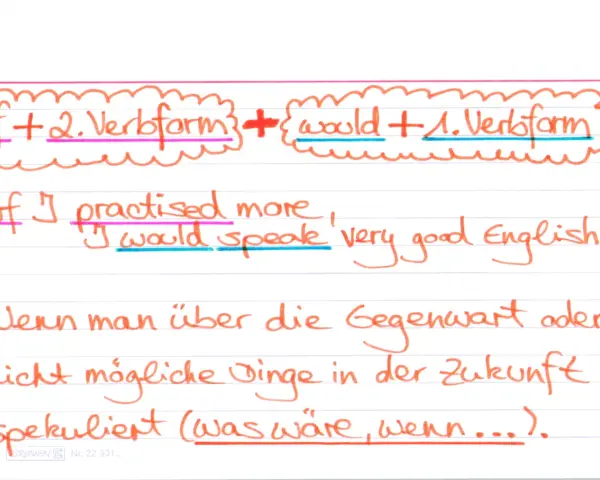 f + 2. Verbform + would + 1. Verbform
If I practised more,
I would speak very good English
Wenn man über die Gegenwart oder
nicht mögliche Dinge in der Zukunft
spekuliert (was wäre, wenn...).